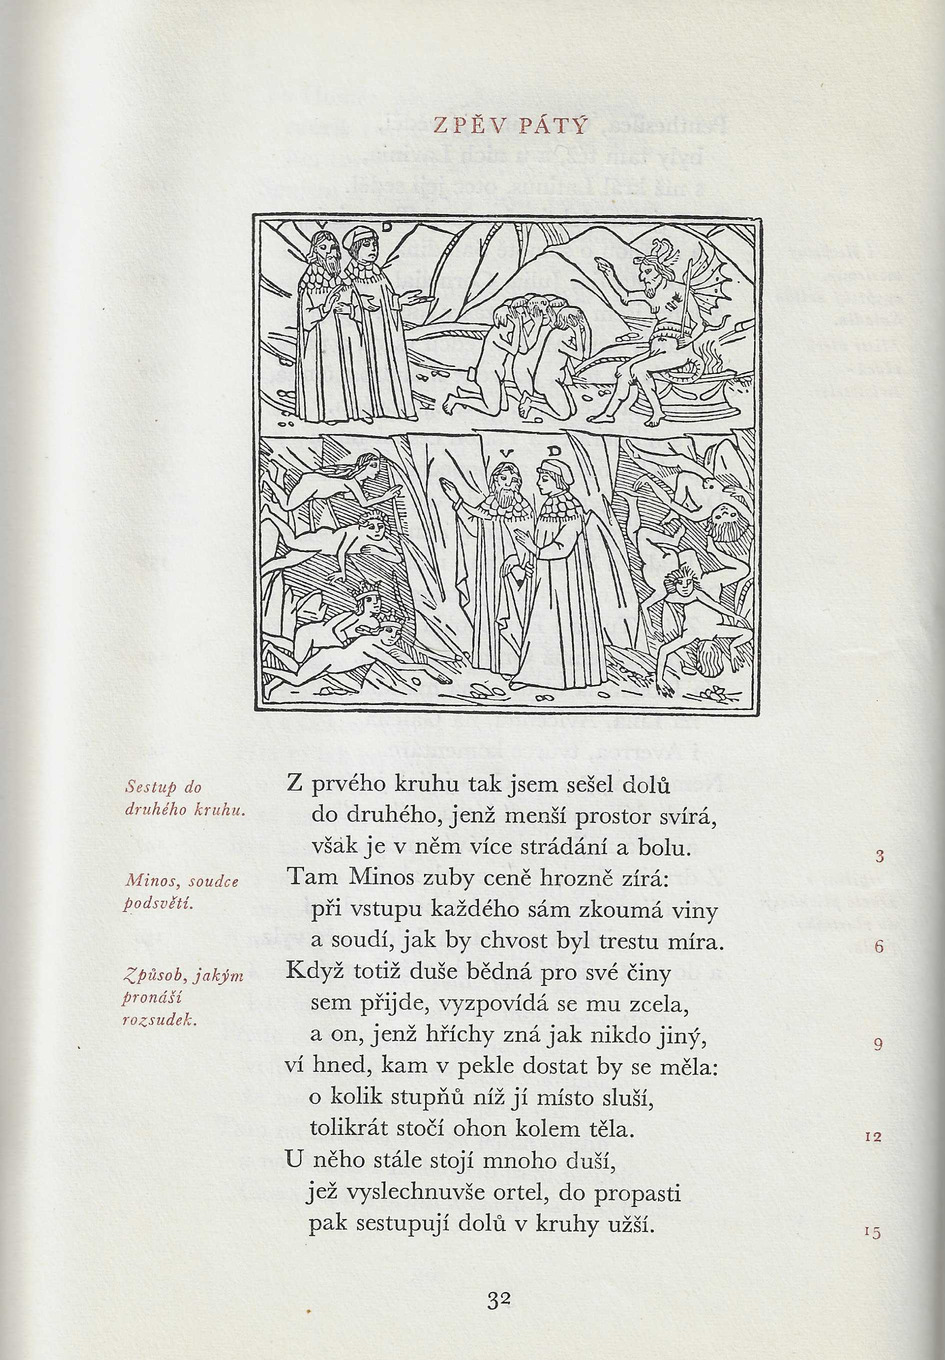 ZPĚV PÁTÝ
V D
V D
Sestup do
druhého kruhu.
Z prvého kruhu tak jsem sešel dolů
do druhého, jenž menší prostor svírá,
však je v něm více strádání a bolu.
3
Minos, soudce
podsvětí.
Tam Minos zuby ceně hrozně zírá:
při vstupu každého sám zkoumá viny
a soudí, jak by chvost byl trestu míra.
6
Způsob, jakým
pronáší
rozsudek.
Když totiž duše bědná pro své činy
sem přijde, vyzpovídá se mu zcela,
a on, jenž hříchy zná jak nikdo jiný,
9
ví hned, kam v pekle dostat by se měla:
o kolik stupňů níž jí místo sluší,
tolikrát stočí ohon kolem těla.
12
U něho stále stojí mnoho duší,
jež vyslechnuvše ortel, do propasti
pak sestupují dolů v kruhy užší.
15
32